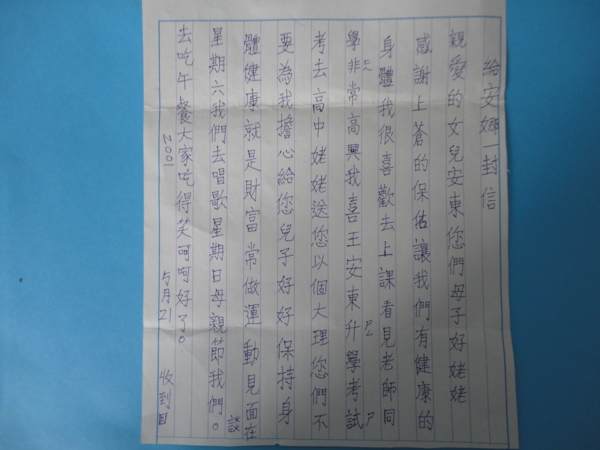 給安娜一封信
親愛的女兒安東您們母子好姥姥
感謝上蒼的保佑讓我們有健康的
身體我很喜歡去上課看見老師同
學非常高興我喜王安東升學考試
考去高中姥姥送您以個大理您們不
要為我擔心給您兒子好好保持身
體健康就是財富常做運動見面在談
星期六我們去唱歌星期日母親節我們。
去吃午餐大家吃得笑呵呵好了。
2001 5月21 收到日